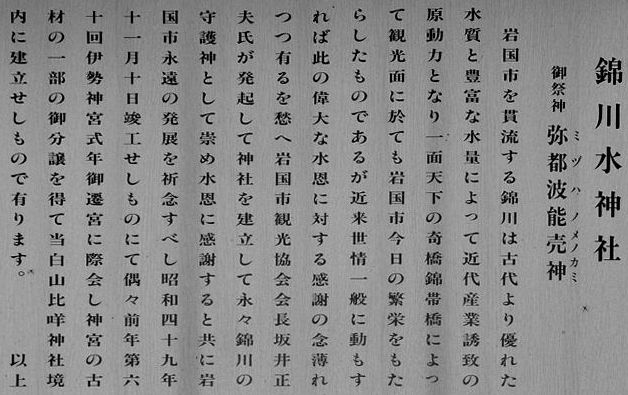 錦川水神社
御祭神 弥都波能売神
ミヅハノメノカミ
岩国市を貫流する錦川は古代より優れた
水質と豊富な水量によって近代産業誘致の
原動力となり一面天下の奇橋錦帯橋によっ
て観光面に於ても岩国市今日の繁栄をもた
らしたものであるが近来世情一般に動もす
れば此の偉大な水恩に対する感謝の念薄れ
つつ有るを愁へ岩国市観光協会会長坂井正
夫氏が発起して神社を建立して永々錦川の
守護神として崇め水恩に感謝すると共に岩
国市永遠の発展を祈念すべし昭和四十九年
十一月十日竣工せしものにて偶々前年第六
十回伊勢神宮式年御遷宮に際会し神宮の古
材の一部の御分譲を得て当白山比咩神社境
内に建立せしもので有ります。 以上